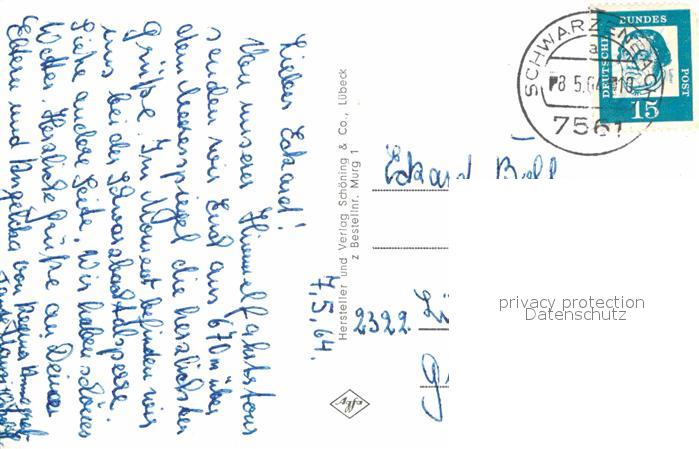 7.5.64.
Lieber Eckard!
Von unserer Himmelfahrtstour
senden wir Euch aus 670 m über
dem Meeresspiegel die herzlichsten
Grüße. Im Moment befinden wir
uns bei der Schwarzbachtalsperre.
Siehe andere Seite. Wir haben schönes
Wetter. Herzliche Grüße an Deine
Eltern und Angelika von
Hersteller und Verlag Schöning & Co., Lübeck
z Bestellnr. Murg 1
Agfa
SCHWARZENBACH
a
8.5.64
7561
DEUTSCHE BUNDESPOST
15
Eckard
2322
privacy protection
Datenschutz